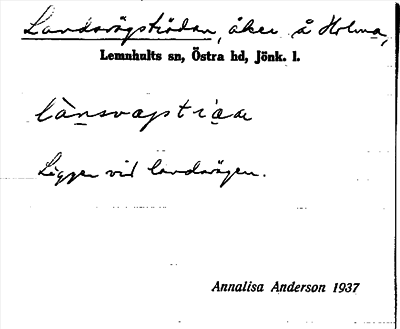 Landsvägsträdan, åker å Holma,
Lemnhults sn, Östra hd, Jönk. l.
Ligger vid landsvägen.
Annalisa Anderson 1937